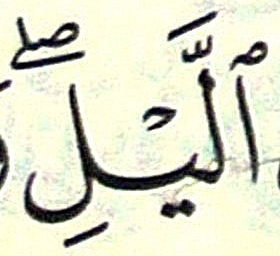 ٱلَّيْلِۖ